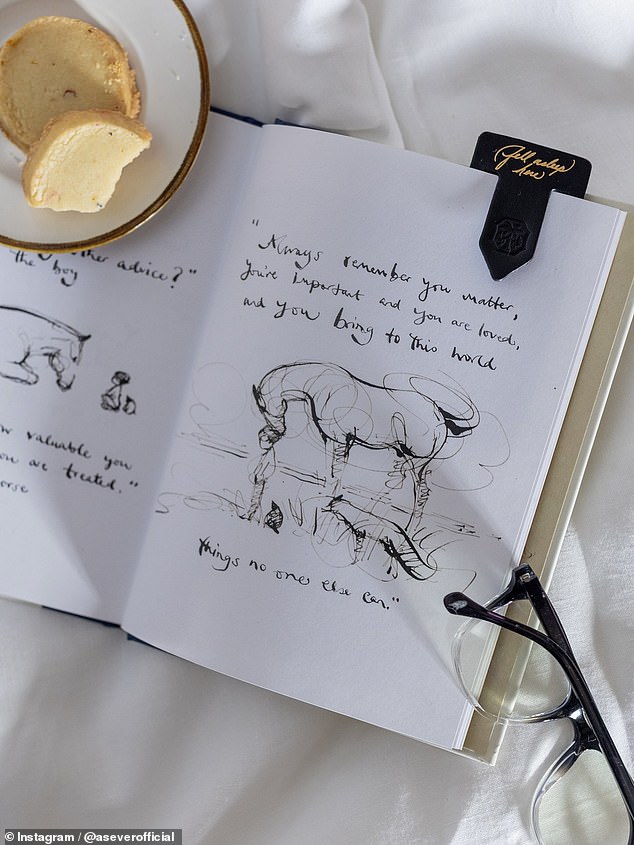 other advice?"
the boy
valuable you
are treated."
"Always remember you matter,
you're important and you are loved,
and you bring to this world
things no one else can."
Fell asleep
here
Instagram / @aseverofficial